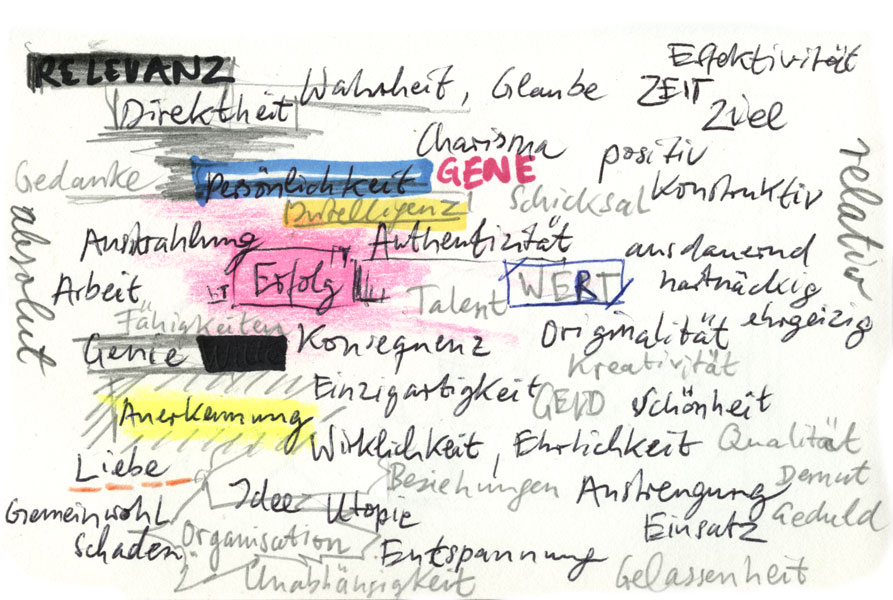 RELEVANZ
Effektivität
Direktheit Wahrheit, Glaube ZEIT
Ziel
Charisma
GENE positiv
Gedanke Persönlichkeit
Intelligenz Schicksal Konstruktiv
relativ
absolut
Ausstrahlung Authentizität ausdauernd
Arbeit Erfolg WERT hartnäckig
Talent
Fähigkeiten Originalität ehrgeizig
Genie Konsequenz
Kreativität
Einzigartigkeit GELD Schönheit
Anerkennung
Wirklichkeit, Ehrlichkeit Qualität
Liebe Beziehungen Demut
Idee Anstrengung
Gemeinwohl Utopie Einsatz Geduld
Schaden Organisation
Entspannung
Unabhängigkeit Gelassenheit